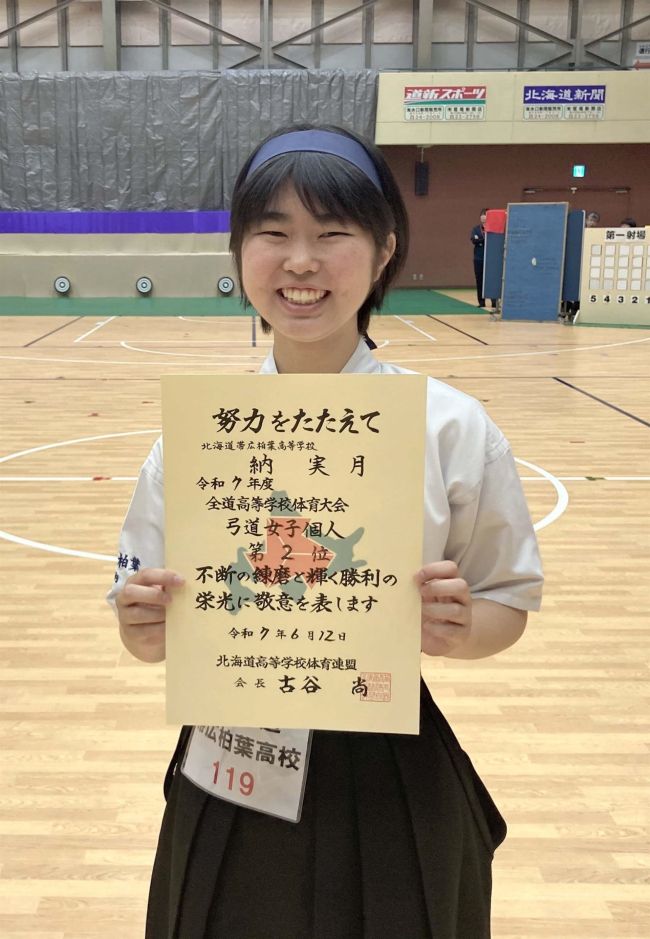 道新スポーツ
北海道新聞
第一射場
5 4 3 2 1
努力をたたえて
北海道帯広柏葉高等学校
納 実月
令和7年度
全道高等学校体育大会
弓道女子個人
第2位
不断の練磨と輝く勝利の
栄光に敬意を表します
令和7年6月12日
北海道高等学校体育連盟
会長 古谷 尚
柏葉
広柏葉高校
119